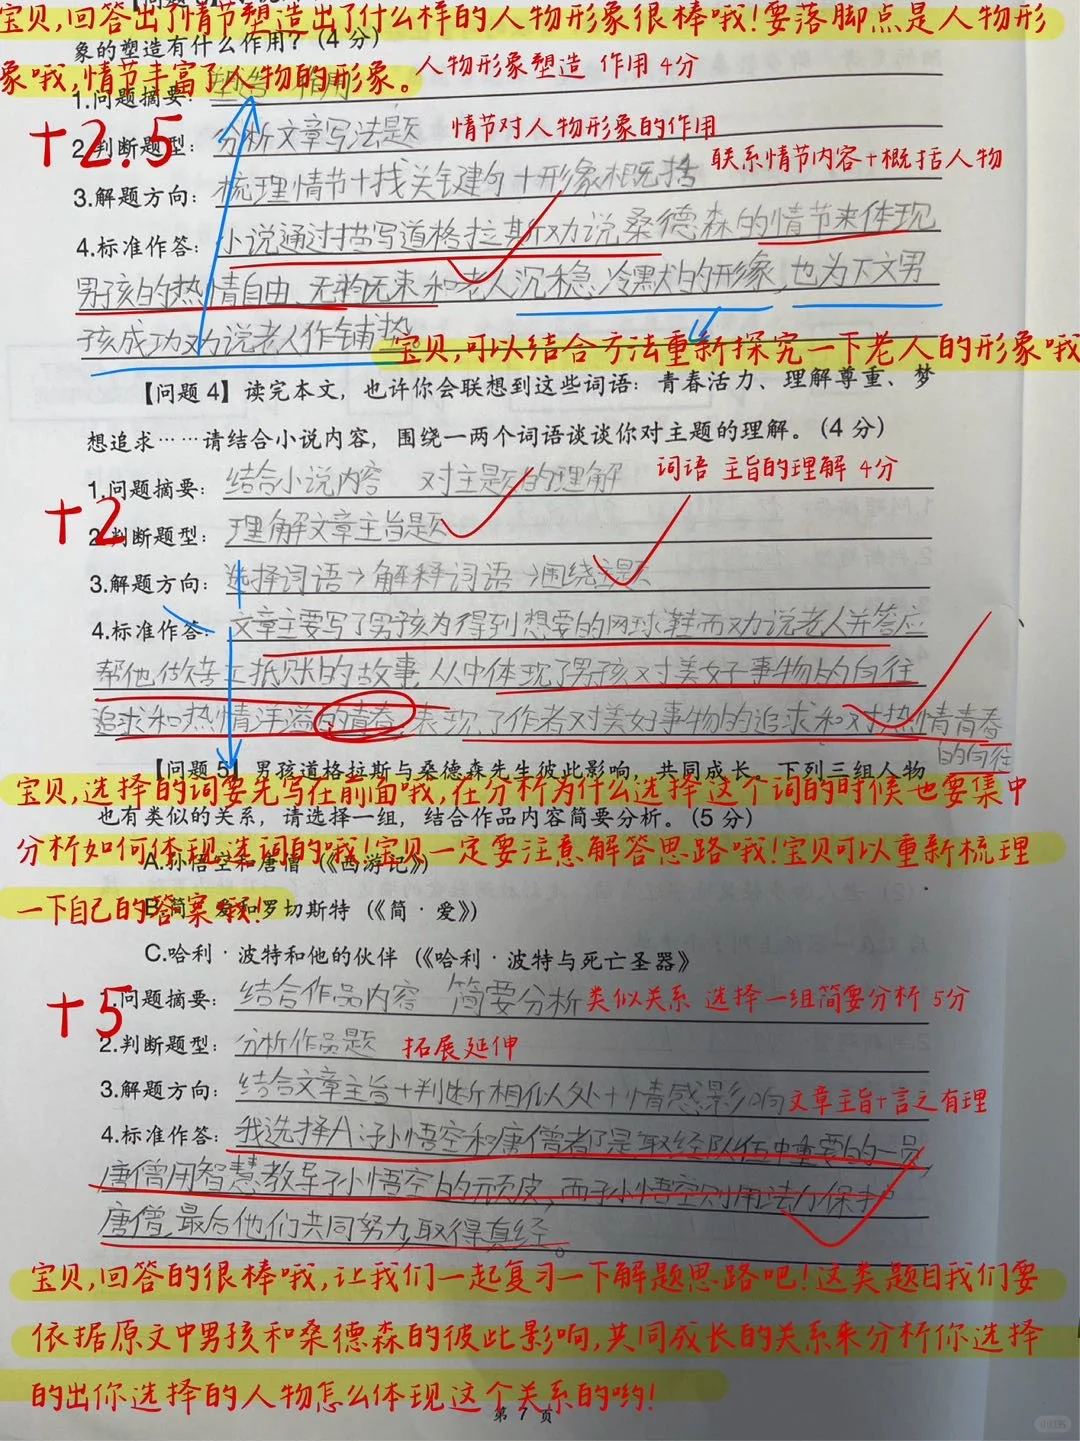 宝贝,回答出了情节塑造出了什么样的人物形象很棒哦!要落脚点是人物形
象的塑造有什么作用?(4 分)
象哦,情节丰富了人物的形象。
人物形象塑造 作用 4分
1.问题摘要: 塑造 作用
+2.5
2.判断题型: 分析文章写法题
情节对人物形象的作用
3.解题方向: 梳理情节+找关键句+形象概括
联系情节内容+概括人物
4.标准作答: 小说通过描写道格拉斯劝说桑德森的情节来体现
男孩的热情自由、无拘无束和老人沉稳、冷默犬的形象,也为下文男
孩成功劝说老人作铺垫
宝贝,可以结合方法重新探究一下老人的形象哦
【问题 4】读完本文,也许你会联想到这些词语:青春活力、理解尊重、梦
想追求……请结合小说内容,围绕一两个词语谈谈你对主题的理解。(4 分)
词语 主旨的理解 4分
1.问题摘要: 结合小说内容 对主题的理解
+2
2.判断题型: 理解文章主旨题
3.解题方向: 选择词语→解释词语→围绕主题
4.标准作答: 文章主要写了男孩为得到想要的网球鞋而劝说老人并答应
帮他做苦工抵账的故事,从中体现了男孩对美好事物的向往
追求和热情洋溢的青春,表现了作者对美好事物的追求和对热情青春
的向往
【问题 5】男孩道格拉斯与桑德森先生彼此影响,共同成长。下列三组人物
宝贝,选择的词要先写在前面哦,在分析为什么选择这个词的时候也要集中
也有类似的关系,请选择一组,结合作品内容简要分析。(5 分)
分析如何体现选词的哦!宝贝一定要注意解答思路哦!宝贝可以重新梳理
A.孙悟空和唐僧(《西游记》)
一下自己的答案哦!
B.简·爱和罗切斯特(《简·爱》)
C.哈利·波特和他的伙伴(《哈利·波特与死亡圣器》
1.问题摘要: 结合作品内容 简要分析
类似关系 选择一组简要分析 5分
+5
2.判断题型: 分析作品题
拓展延伸
3.解题方向: 结合文章主旨+判断相似处+情感影响
文章主旨+言之有理
4.标准作答: 我选择A:孙悟空和唐僧者都是取经队伍中重要的一员,
唐僧用智慧教导孙悟空的顽皮,而孙悟空则用法力保护
唐僧,最后他们共同努力,取得真经。
宝贝,回答的很棒哦,让我们一起复习一下解题思路吧!这类题目我们要
依据原文中男孩和桑德森的彼此影响,共同成长的关系来分析你选择
的出你选择的人物怎么体现这个关系的哟!
第 7 页
小红书